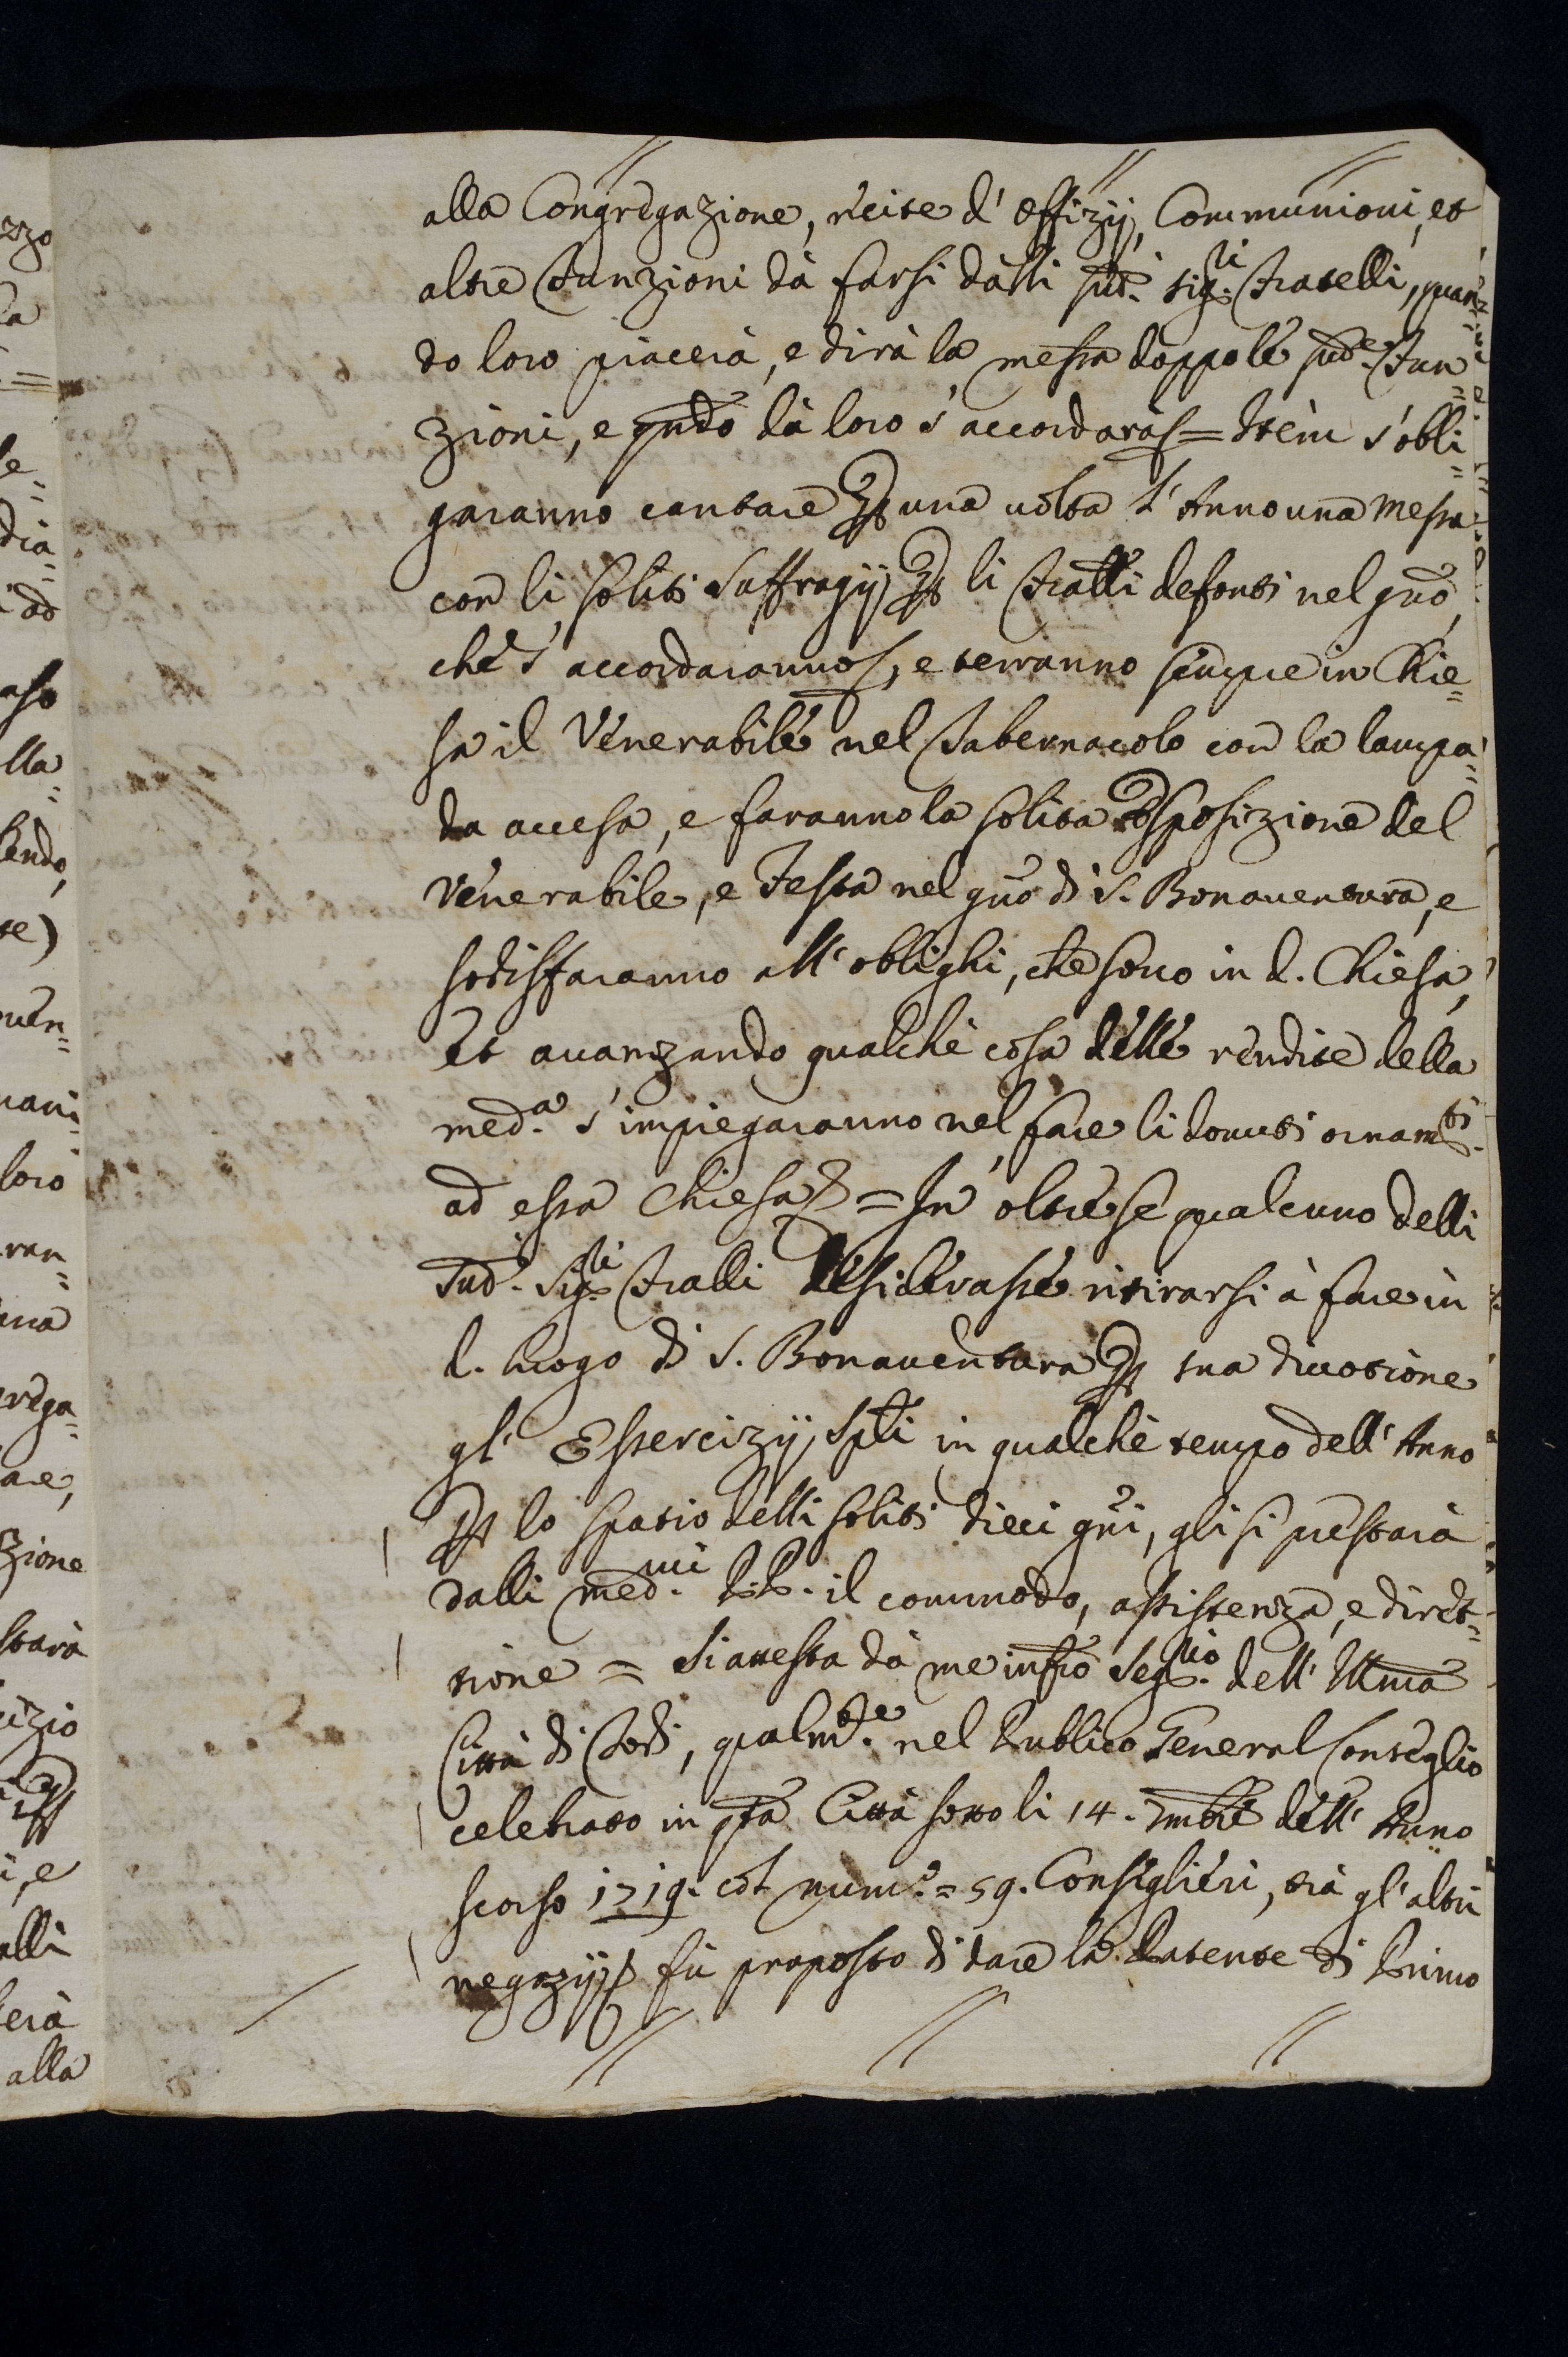 alla Congregazione, recite d' Offizij, Communioni, et
altre Funzioni dà farsi dalli sud.i sig.li Fratelli, quan=
do loro piacerà, e dirà la messa doppo le sud.e Fun=
zioni, e qndo dà loro s' accordarà = Item s' obli=
garanno cantare una volta l' Anno una Messa
con li soliti Suffragij li Fralli defonti nel gno,
che s' accordaranno, e terranno sempre in Chie=
sa il Venerabile nel Tabernacolo con la lampa=
da accesa, e faranno la solita Esposizione del
Venerabile, e Festa nel gno di S. Bonaventura, e
sodisfaranno all' oblighi, che sono in d. Chiesa,
Et avanzando qualche cosa delle rendite della
med.a s' impiegaranno nel fare li dovuti ornam.ti
ad essa Chiesa = In oltre se qualcuno delli
Sud.i Sig.li Fralli desiderasse ritirarsi à fare in
d. luogo di S. Bonaventura sua divotione
gl' Essercizij Spli in qualche tempo dell' Anno
lo spatio delli soliti dieci gni, gli si prestarà
dalli med.mi PP. il commodo, assistenza, e diret=
tione = Si attesta dà me infro Seg.rio dell' Illma
Città di Todi, qualm.te nel Publico General Conseglio
celebrato in qsta Città sotto li 14. Xmbre dell' Anno
scorso 1719. col num.o = 59. Consiglieri, trà gl' altri
negozij fù proposto di dare la Patente di Primo
zzo
la
=
le=
dia=
ad
aso
lla=
endo,
te)
ven=
mani=
loro
ran=
una
rega=
are,
zione
starà
cizio
i, e
alli
erà
alla